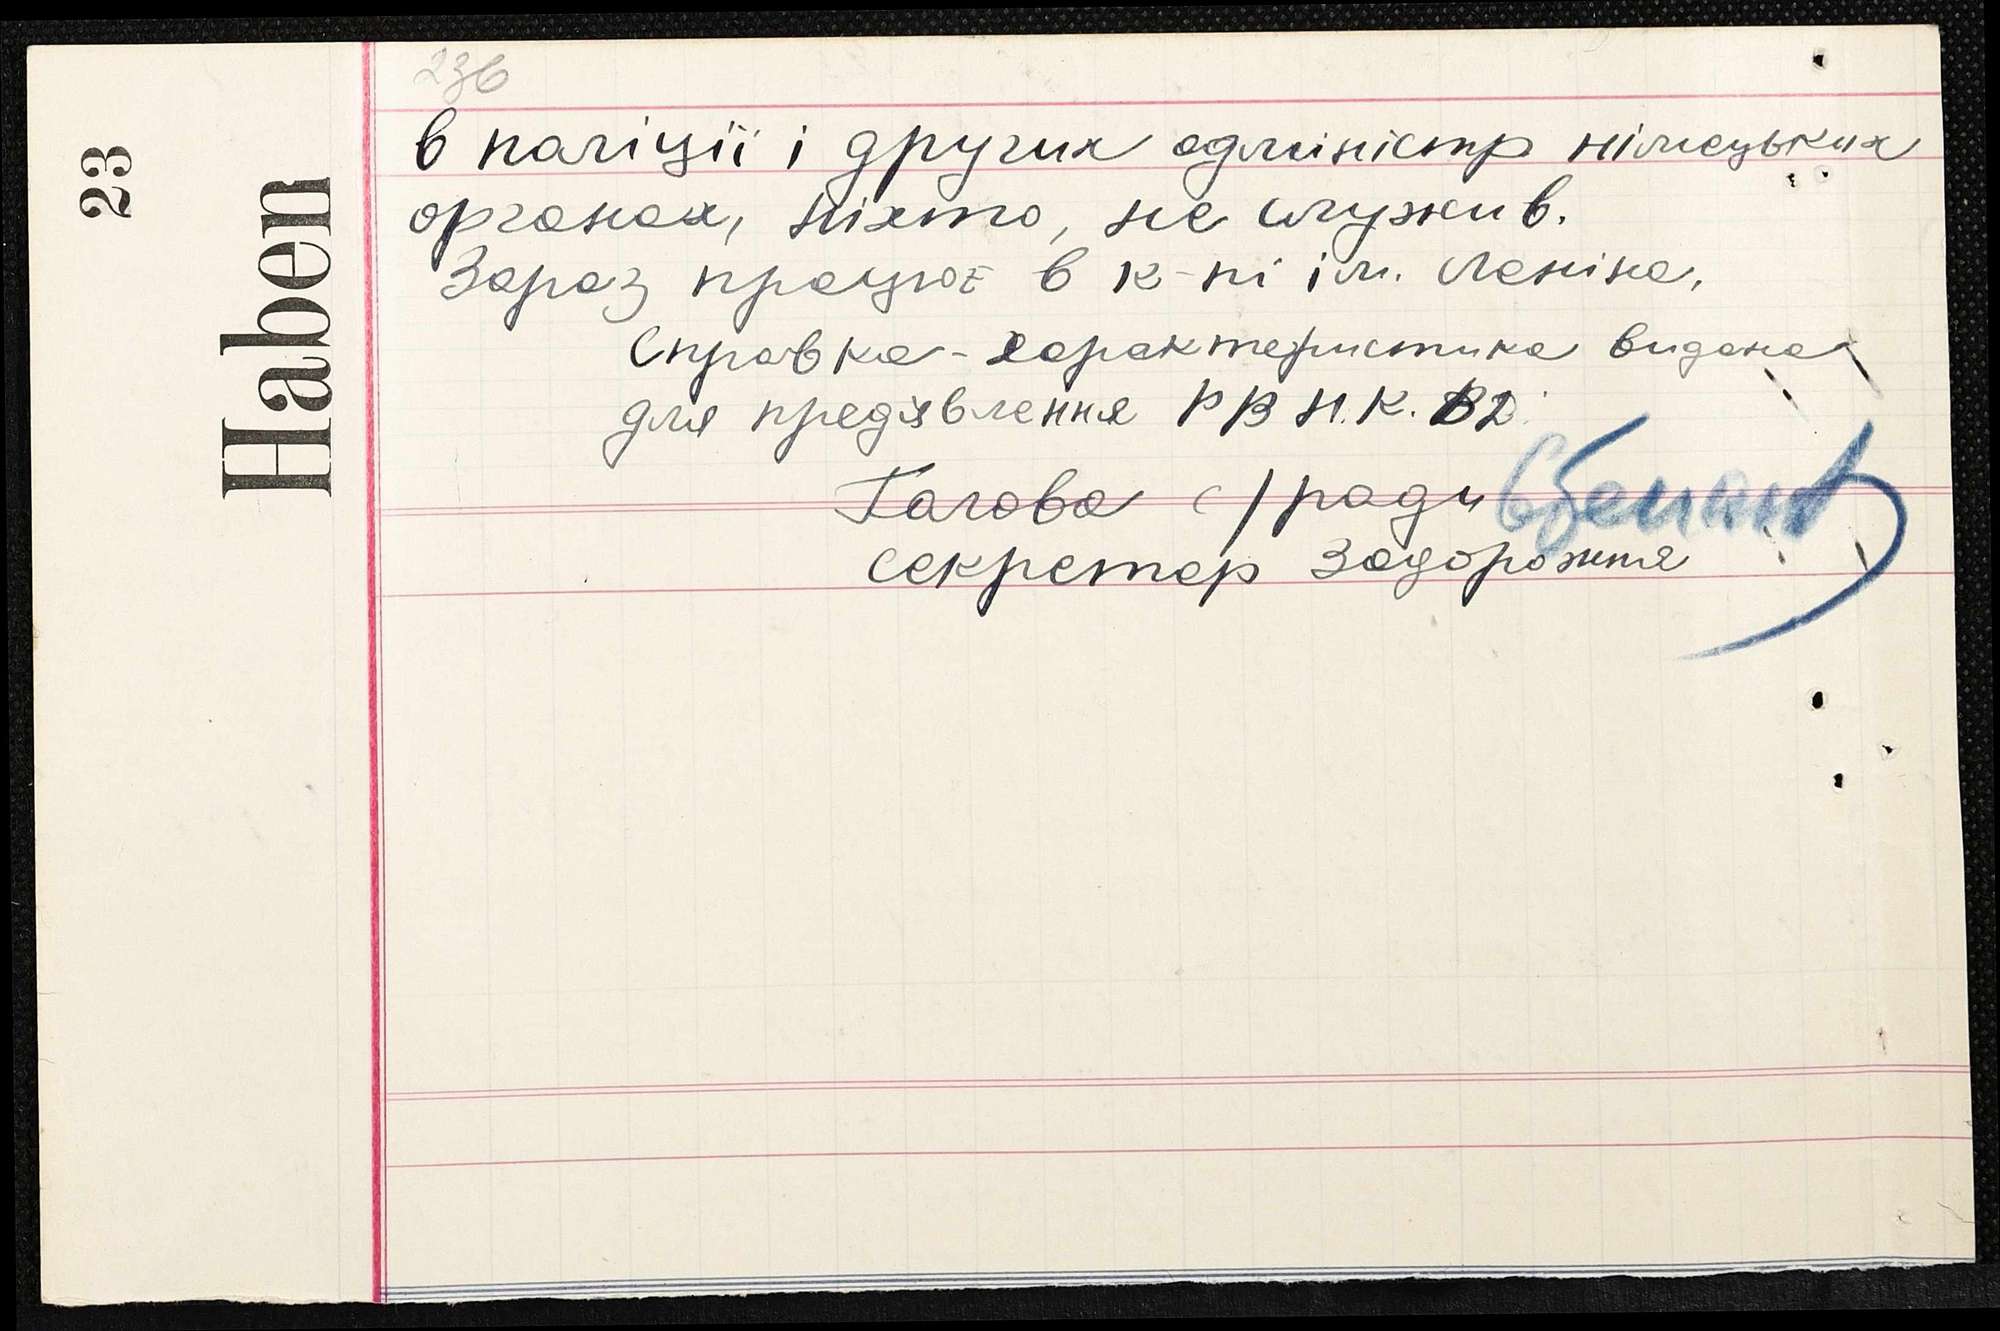 23в
в поліції і других адміністр німецьких
органах, ніхто, не служив.
Зараз працює в к-пі ім. Леніна.
Справка-характеристика видана
для предявлення РВ Н.К.ВД.
Голова с/ради
секретар Задорожня
23
Haben